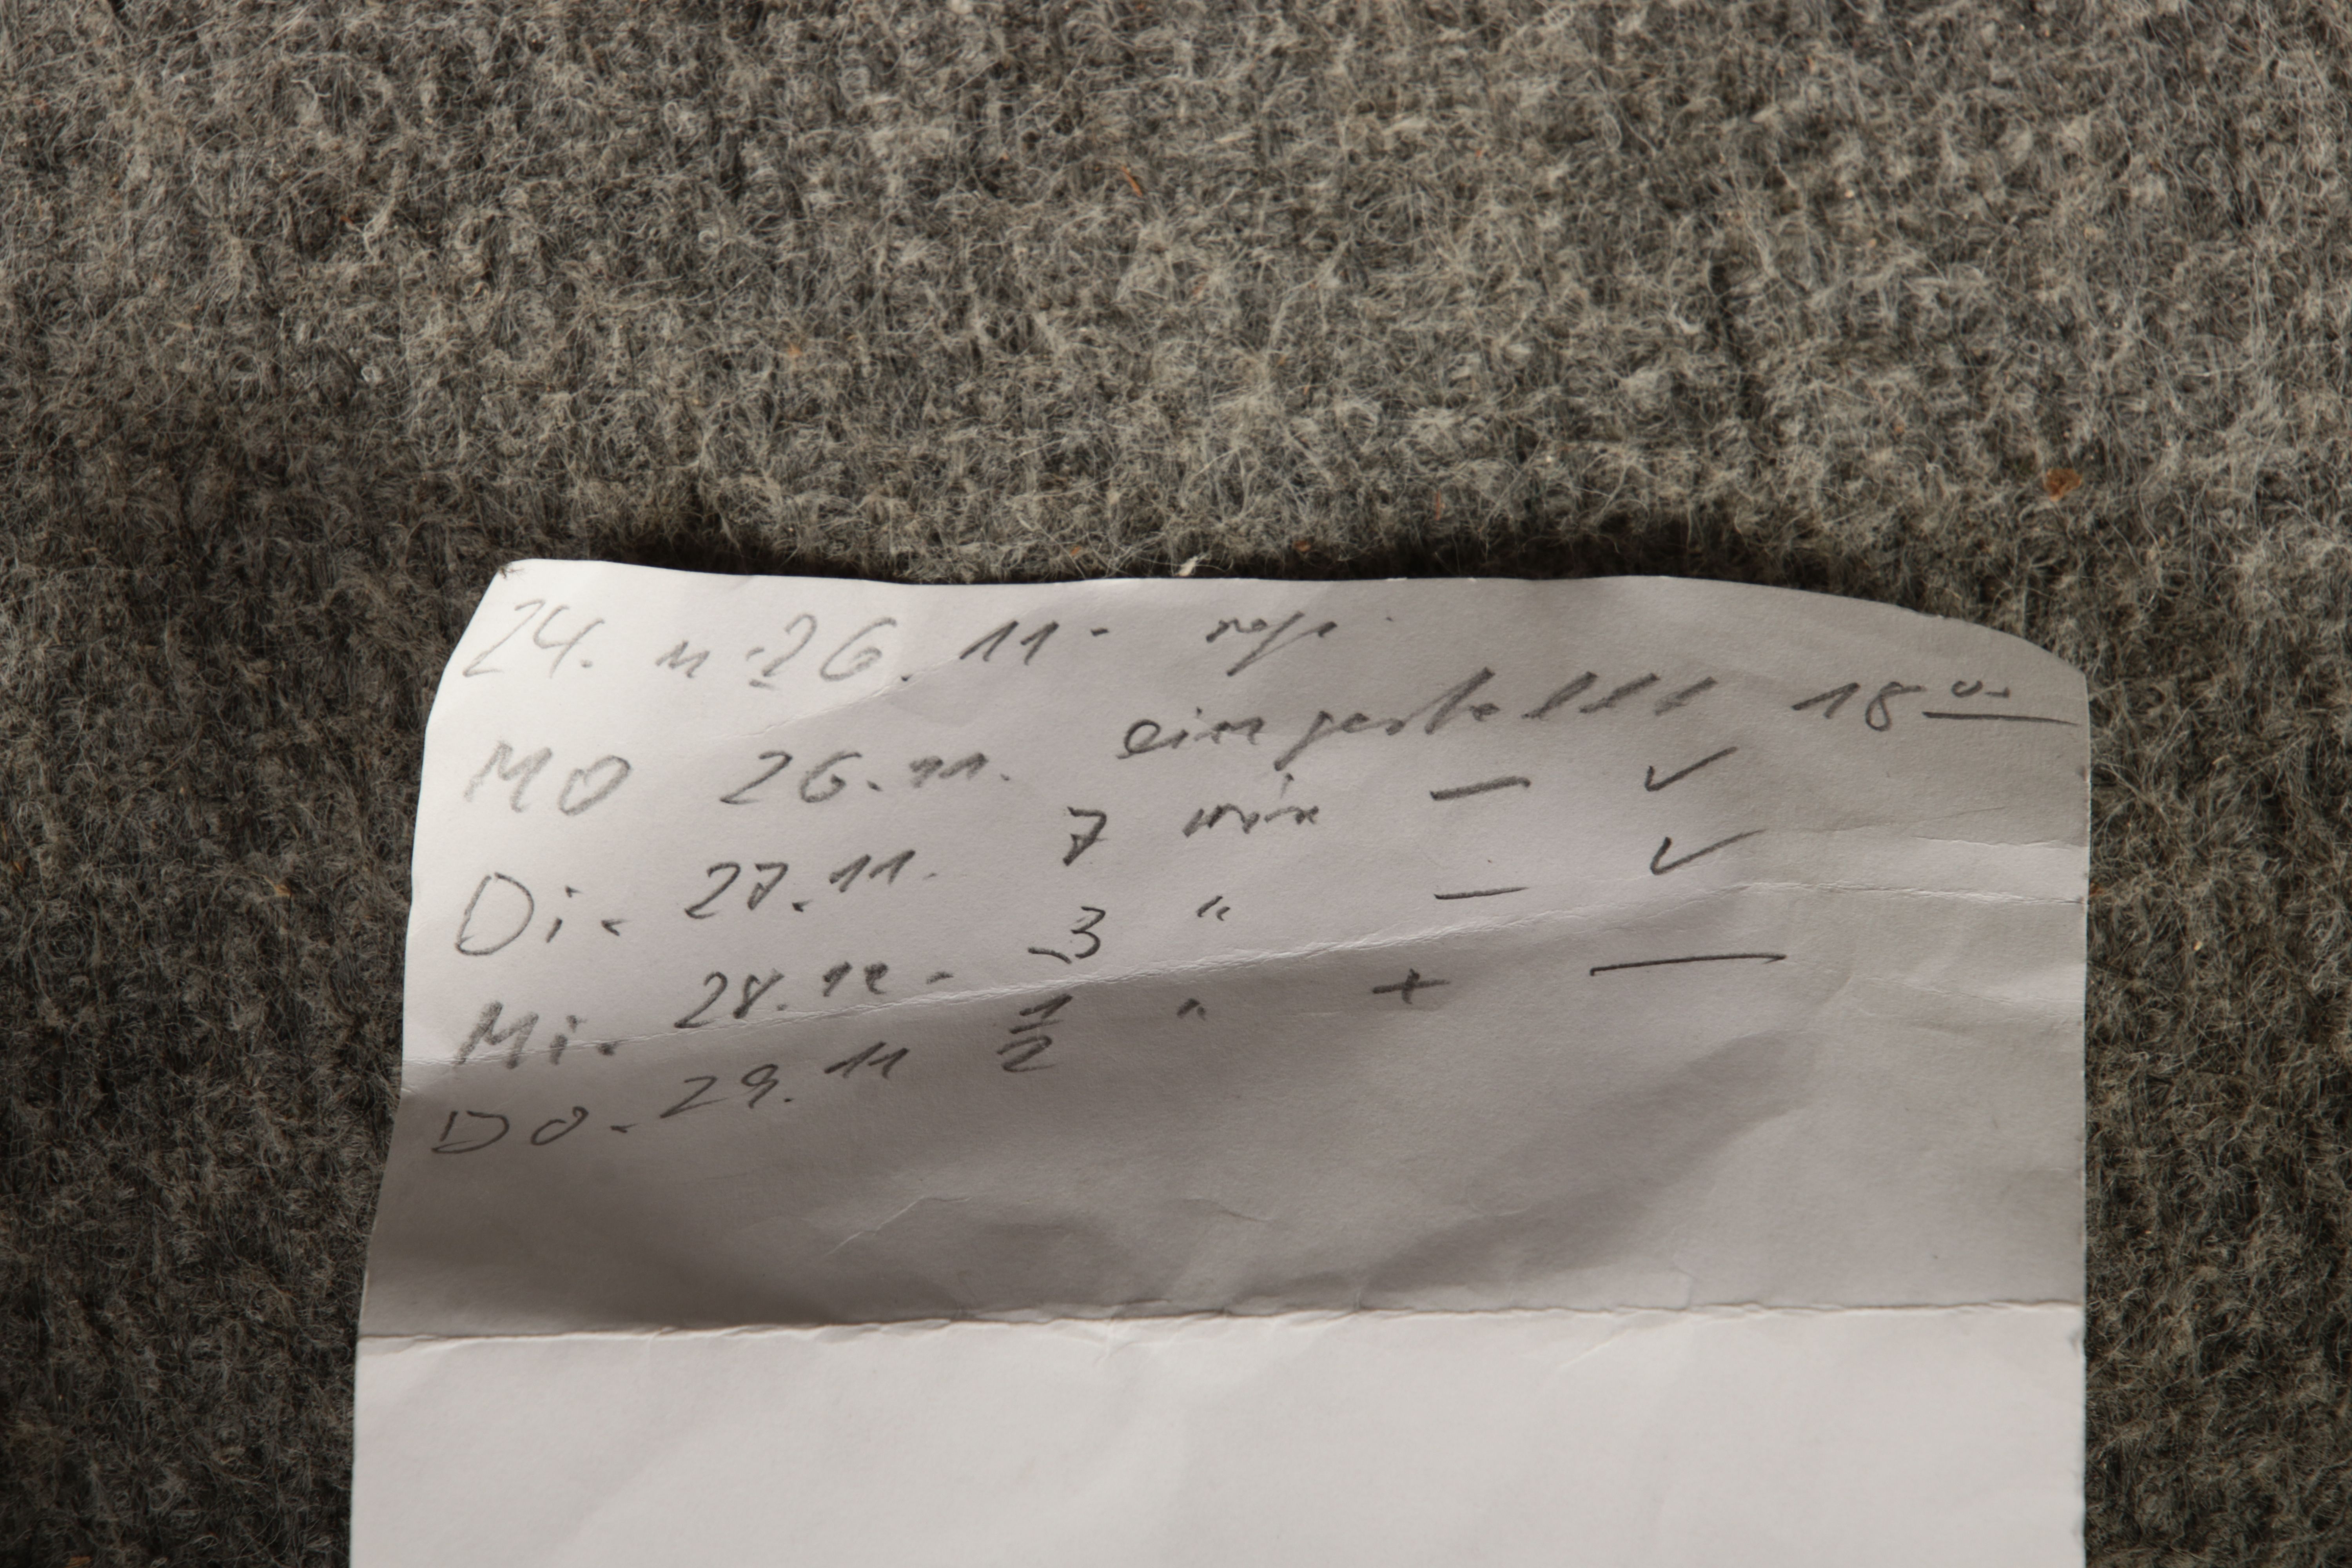 24. u. 26. 11. rep.
MO 26.11. eingestellt 18 00
Di. 27.11. 7 min — ✓
Mi. 28.11. 3 " — ✓
Do. 29.11 1/2 " + —